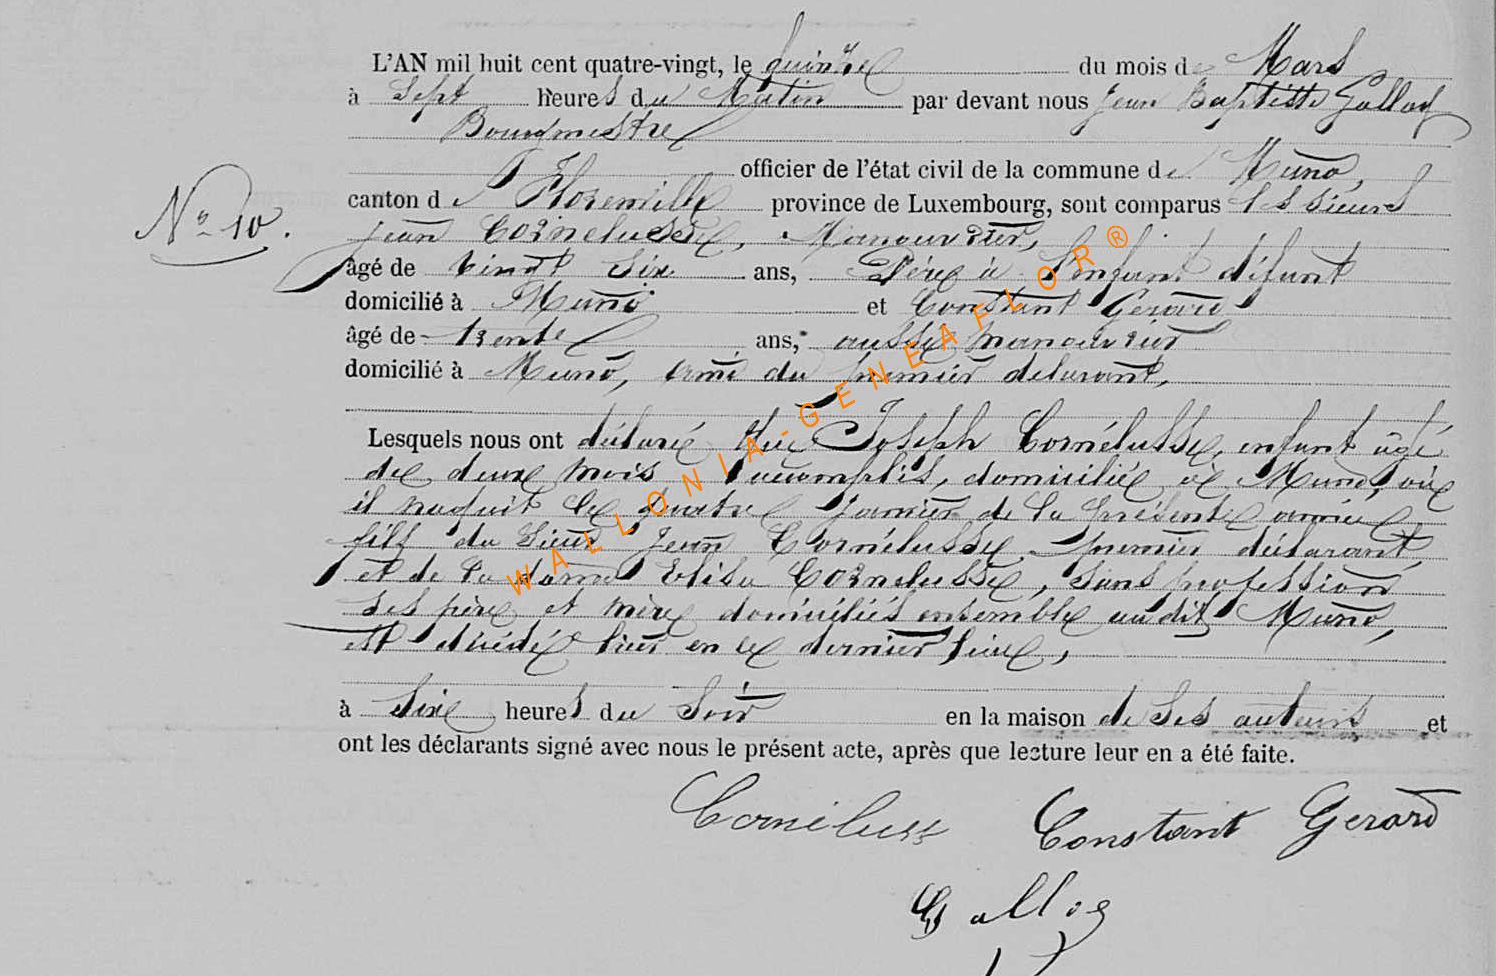 L'AN mil huit cent quatre-vingt, le quinze du mois de Mars
à Sept heures du Matin par devant nous Jean Baptiste
Bourgmestre
officier de l'état civil de la commune de Muno,
N° 10.
canton de Florenville province de Luxembourg, sont comparus les sieurs
Jean Cornelusse, Manouvrier,
âgé de vingt six ans, Père à l'enfant défunt
domicilié à Muno et Constant Gerard
âgé de trente ans, aussi manouvrier
domicilié à Muno, ami du premier déclarant,
Lesquels nous ont déclaré que Joseph Cornélusse, enfant âgé
de deux mois accomplis, domicilié à Muno, où
il naquit le quatre Janvier de la présente année
fils du Sieur Jean Cornélusse, premier déclarant,
et de la dame Elisa Cornelusse, sans profession
ses père et mère domiciliés ensemble audit Muno,
est décédé hier en ce dernier lieu,
à Six heures du Soir en la maison de ses auteurs et
ont les déclarants signé avec nous le présent acte, après que lecture leur en a été faite.
Cornéluss Constant Gerard
WALLONIA-GENEAFLOR®